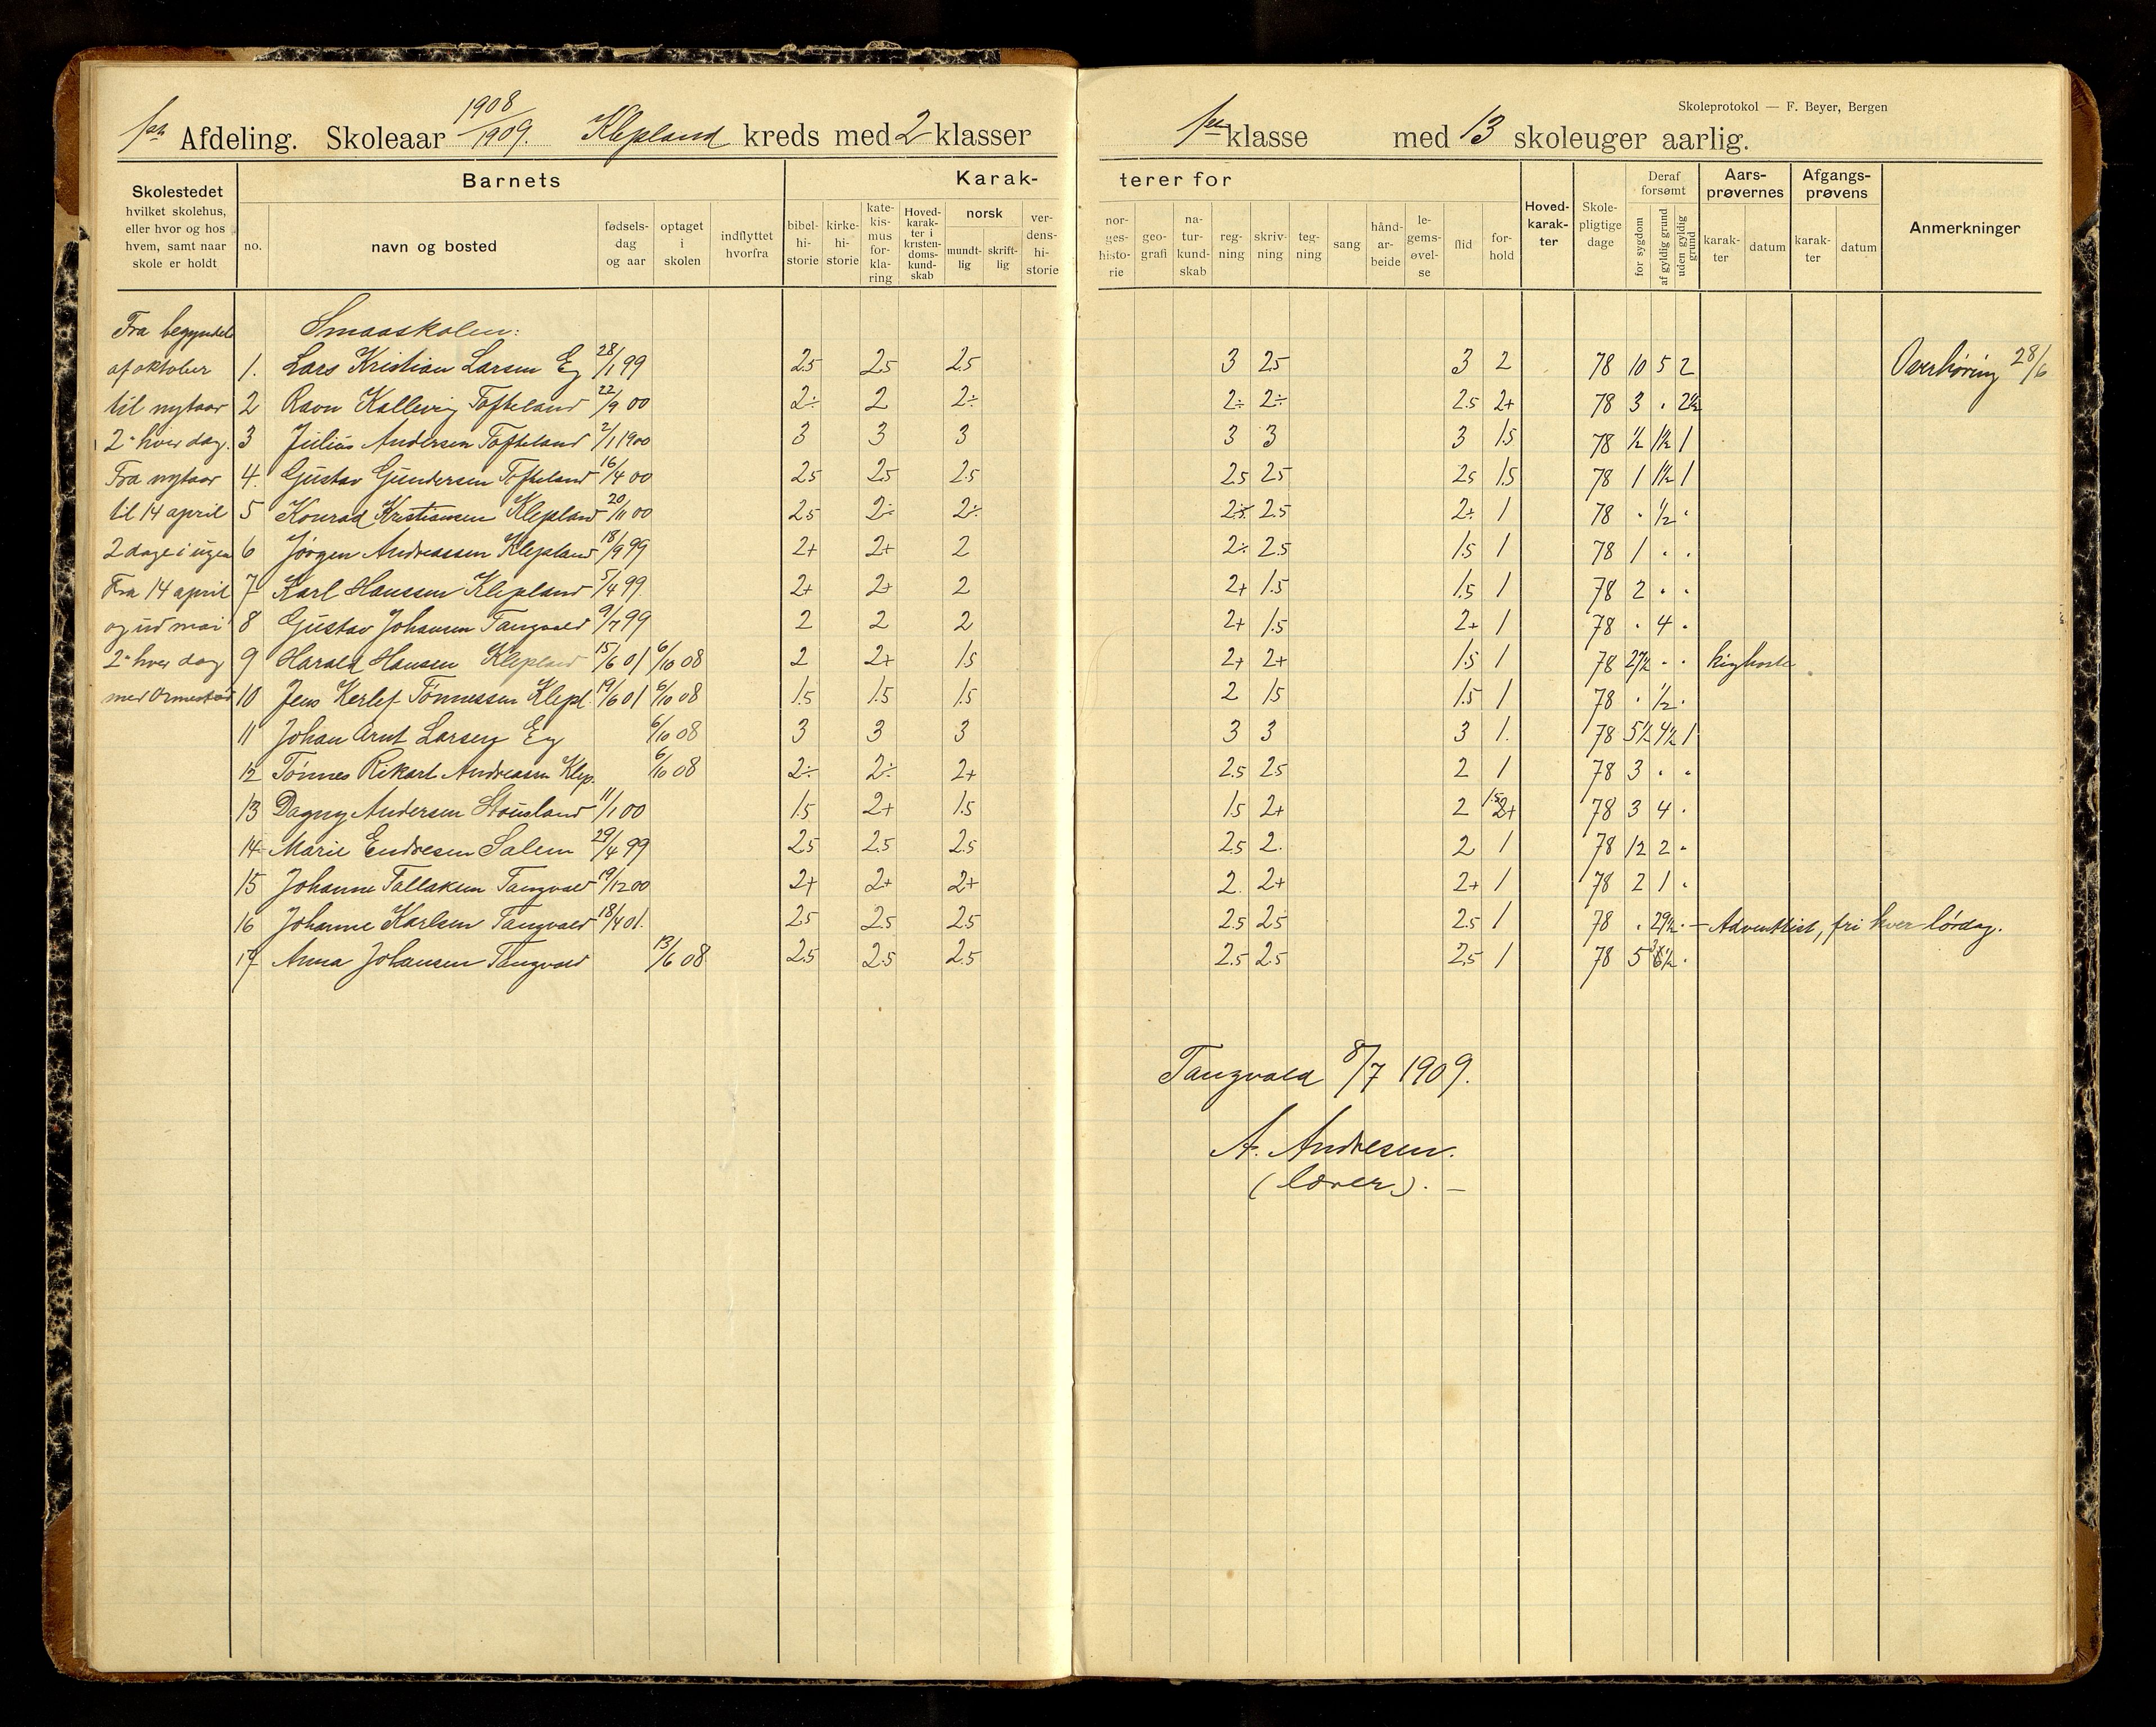 Skoleprotokol — F. Beyer, Bergen
1ste Afdeling. Skoleaar 1908/1909. Klepland kreds med 2 klasser
1ste klasse med 13 skoleuger aarlig.
Skolestedet hvilket skolehus, eller hvor og hos hvem, samt naar skole er holdt
Barnets
no. navn og bosted fødselsdag og aar optaget i skolen indflyttet hvorfra
Karakterer for
bibelhistorie kirkehistorie katekismusforklaring Hovedkarakter i kristendomskundskab norsk mundtlig skriftlig verdenshistorie
norgeshistorie geografi naturkundskab regning skrivning tegning sang håndarbeide legemsøvelse flid forhold
Hovedkarakter Skolepligtige dage Deraf forsømt for sygdom af gyldig grund uden gyldig grund
Aarsprøvernes karakter datum Afgangsprøvens karakter datum Anmerkninger
Fra begyndels Smaaskolen:
af oktober 1. Lars Kristian Larsen Eg 28/1 99 2.5 2.5 2.5 3 2.5 3 2 78 10 5 2 Overhøring 28/6
til nytaar 2 Ravn Kallevig Tofteland 22/9 00 2÷ 2 2÷ 2÷ 2÷ 2.5 2+ 78 3 . 2½
2den hver dag. 3 Julius Andersen Tofteland 2/1 1900 3 3 3 3 3 3 1.5 78 ½ 1½ 1
Fra nytaar 4. Gustav Gundersen Tofteland 16/4 00 2.5 2.5 2.5 2.5 2.5 2.5 1.5 78 1 1½ 1
til 14 april 5 Konrad Kristiansen Klepland 20/11 00 2.5 2÷ 2÷ 2÷ 2.5 2+ 1 78 . ½ .
2 dage i ugen 6 Jørgen Andreassen Klepland 18/9 99 2+ 2+ 2 2÷ 2.5 1.5 1 78 1 . .
Fra 14 april 7 Karl Hanssen Klepland 5/4 99. 2+ 2+ 2 2+ 1.5 1.5 1 78 2 . .
og ud mai 8 Gustav Johansen Tangvald 9/7 99 2 2 2 2+ 1.5 2+ 1 78 . 4 .
2den hver dag 9 Harald Hansen Klepland 15/6 01 6/10 08 2 2+ 1.5 2+ 2+ 1.5 1 78 27½ . . kighoste
med Ormestad 10 Jens Kerlef Tønnessen Klepl. 19/6 01 6/10 08 1.5 1.5 1.5 2 1.5 1.5 1 78 . ½ .
11 Johan Arnt Larsen Eg 6/10 08 3 3 3 3 3 3 1. 78 5½ 4½ 1
12 Tønnes Rikart Andreassen Klep. 6/10 08 2÷ 2÷ 2+ 2.5 2.5 2 1 78 3 . .
13 Dagny Andersen Stousland 11/1 00 1.5 2+ 1.5 1.5 2+ 2 1.5 78 3 4 .
14 Marie Endresen Salem 29/4 99 2.5 2.5 2.5 2.5 2. 2 1 78 12 2 .
15 Johanne Tallaksen Tangvald 19/12 00 2+ 2+ 2+ 2. 2+ 2+ 1 78 2 1 .
16 Johanne Karlsen Tangvald 18/4 01. 2.5 2.5 2.5 2.5 2.5 2.5 1 78 . 29½ . – Adventist, fri hver lørdag.
17 Anna Johansen Tangvald 13/6 08 2.5 2.5 2.5 2.5 2.5 2.5 1 78 5 .
Tangvald 8/7 1909.
A. Andresen.
(lærer). –